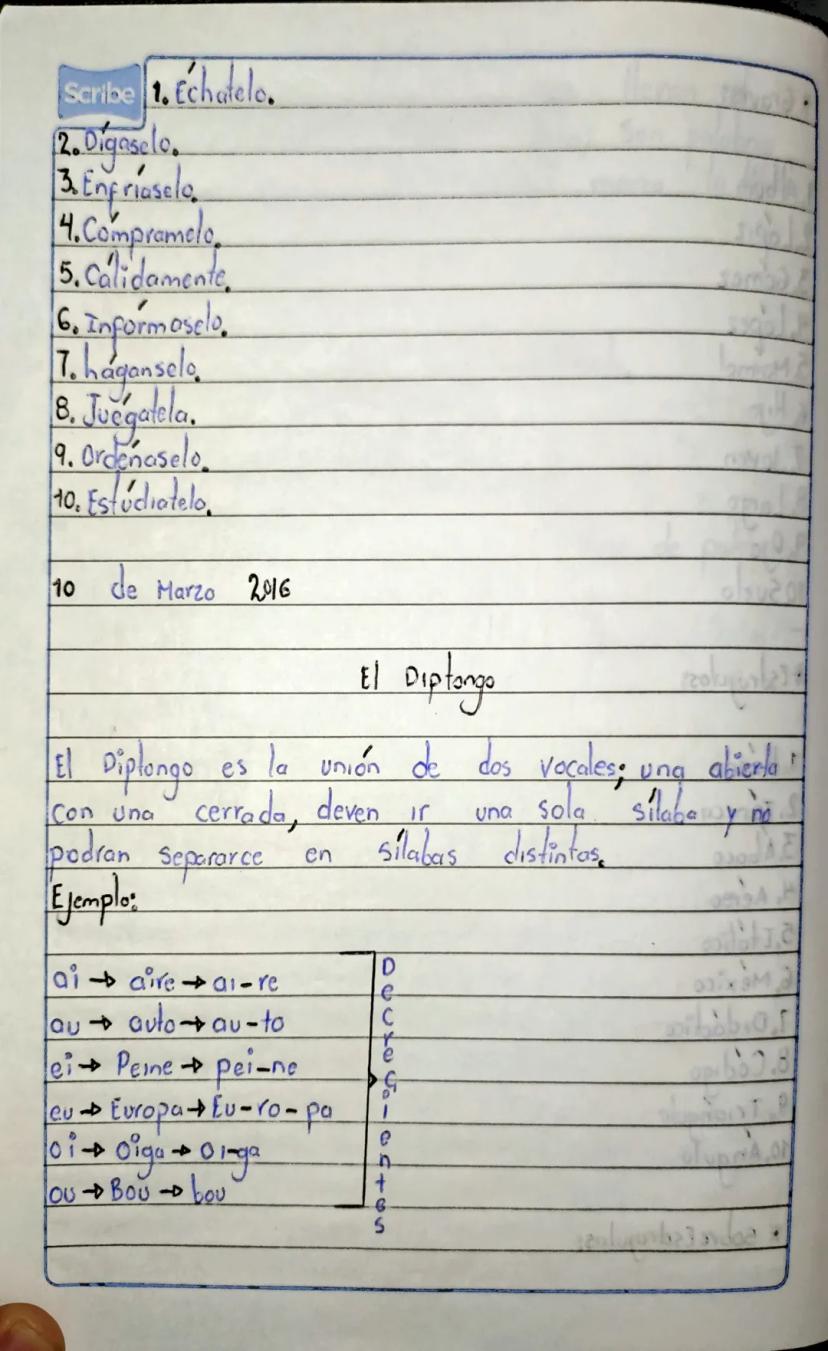 Scribe 1. Échatelo.
2. Dígaselo.
3. Enfríaselo.
4. Cómpramelo.
5. Cálidamente.
6. Infórmaselo.
7. háganselo.
8. Juégatela.
9. Ordéñaselo.
10. Estúdiatelo.
10 de Marzo 2016
El Diptongo
El Diptongo es la unión de dos vocales; una abierta
con una cerrada, deven ir una sola sílaba y no
podran separarce en sílabas distintas.
Ejemplo:
ai → aire → ai-re
au → auto → au-to
ei → Peine → pei-ne
eu → Europa → Eu-ro-pa
oi → Oiga → Oi-ga
ou → Bou → bou
Decrecientes